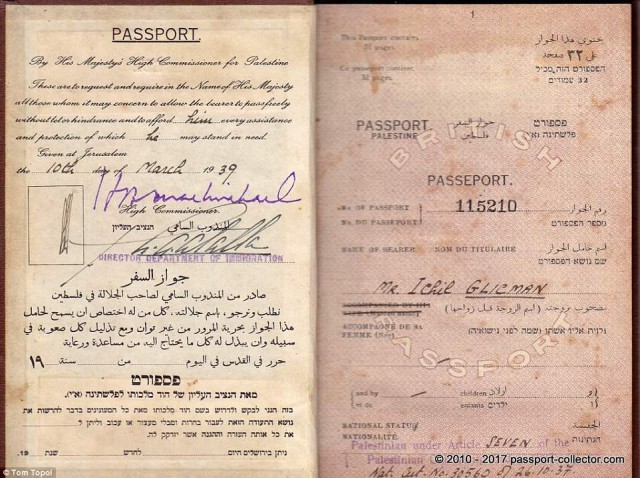 PASSPORT.
By His Majesty's High Commissioner for Palestine
These are to request and require in the Name of His Majesty
all those whom it may concern to allow the bearer to pass freely
without let or hindrance and to afford him every assistance
and protection of which he may stand in need.
Given at Jerusalem
the 10th day of March 1939
High Commissioner.
المندوب السامي הנציב-העליון
DIRECTOR DEPARTMENT OF IMMIGRATION
جواز السفر
صادر من المندوب السامي لصاحب الجلالة في فلسطين
نطلب ونرجو، باسم جلالته، كل من له اختصاص ان يسمح لحامل
هذا الجواز بحرية المرور من غير توان ومع تذليل كل صعوبة في
سبيله وان يبذل له كل ما يحتاج اليه من مساعدة ورعاية
حرر في القدس في اليوم من سنة ١٩
פספורט
מאת הנציב העליון של הוד מלכותו לפלשתינה (א״י).
בזה הנני לבקש ולדרוש בשם הוד מלכותו מאת כל המעונינים בדבר להרשות את
נושא התעודה הזאת לעבור בחרות ומבלי מעצור או עכוב וליתן לו
את כל אותה העזרה וההגנה אשר יזדקק לה.
ניתן בירושלים היום לחדש שנת 19
1
This Passport contains
32 pages.
Ce passeport contient
32 pages.
يحتوي هذا الجواز
على ٣٢ صفحة
הפספורט הזה מכיל
32 עמודים
PASSPORT جواز السفر פספורט
PALESTINE فلسطين פלשתינה (א״י)
BRITISH PASSPORT
PASSEPORT.
No. OF PASSPORT 115210 رقم الجواز
No. DU PASSEPORT מספר הפספורט
NAME OF BEARER NOM DU TITULAIRE اسم حامل الجواز
שם נושא-הפספורט
Mr. Ichil GLICMAN
ACCOMPANIED BY HIS
WIFE (Maiden name)
مصحوب بزوجته (اسم الزوجة قبل زواجها)
ACCOMPAGNÉ DE SA
FEMME (Née)
נלוית אליו אשתו (שמה לפני נישואיה)
and by children اولاد و
et de enfants ילדים ו
NATIONAL STATUS الجنسية
NATIONALITÉ הנתינות
Palestinian under Article SEVEN of the
Nat. Cert. No. 30560 of 26.10.37.
© Tom Topol
© 2010 - 2017 passport-collector.com